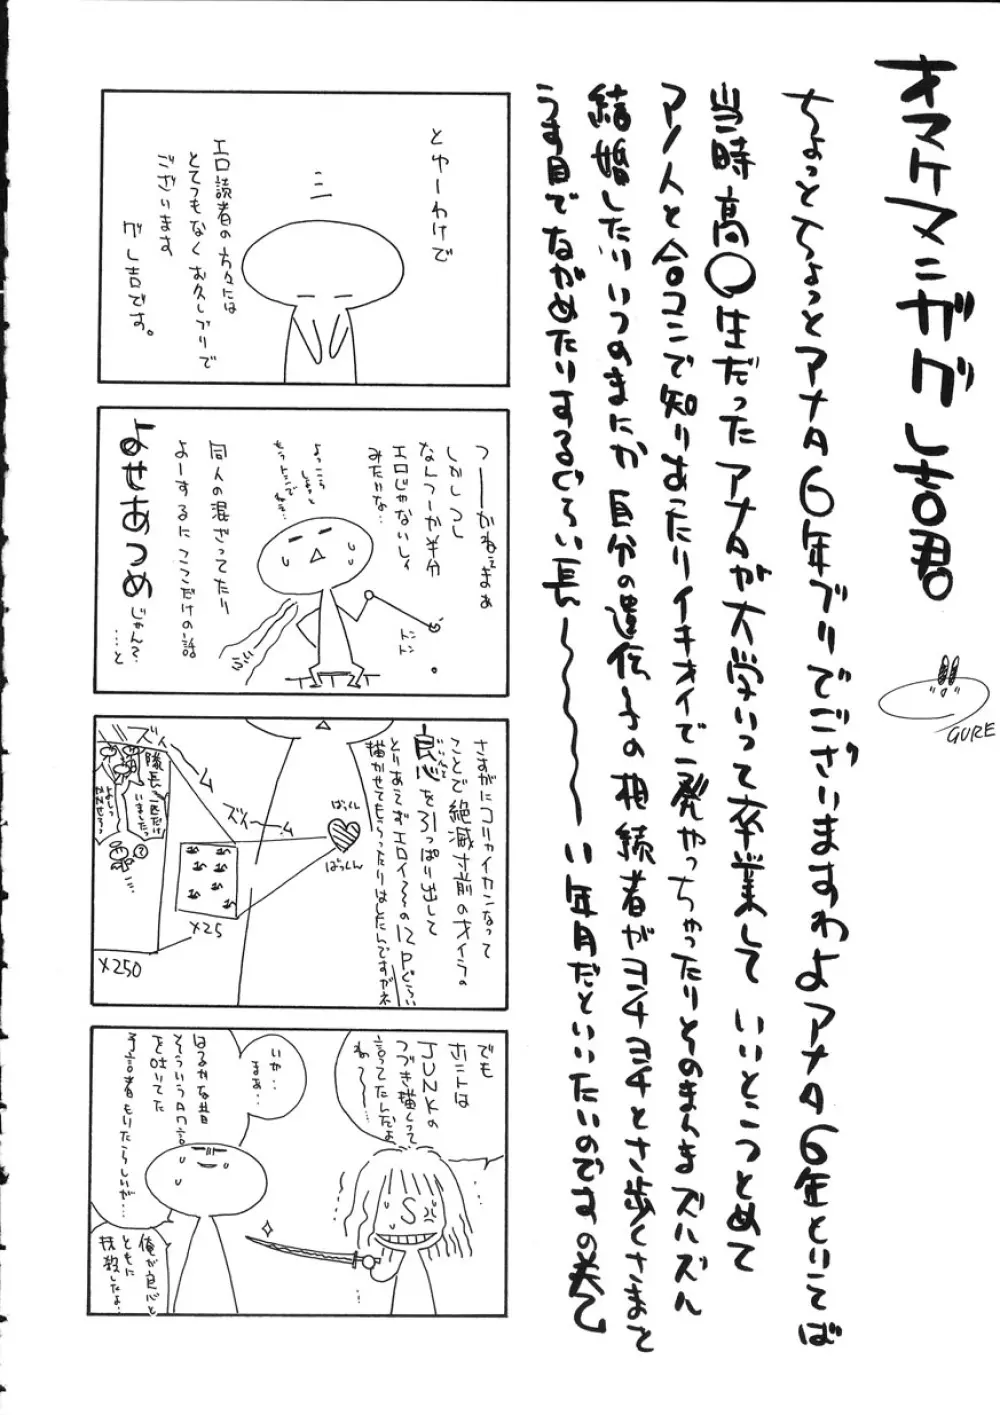 オマケマンガグレ吉君
ちょっとちょっとアナタ6年ブリでございますわよアナタ6年といえば
当時高〇生だったアナタが大学いって卒業していいとこつとめて
アノ人と合コンで知りあったりイキオイで一発やっちゃったりそのまんまズルズル
結婚したりいつのまにか自分の遺伝子の相続者がヨチヨチとさ歩くさまを
うす目でながめたりするぐらい長〜〜〜〜い年月だといいたいのですの美ム
GURE
とゆーわけで
エロ読者の方々には
とてつもなくお久しブリで
ございます
グレ吉です。
つーかねぇまぁ
しかしつし
なんつーか半分
エロじゃないし
みたいな…
よっこら
しょっと
同人の混ざってたり
よーするにここだけの話
よせあつめ
じゃん?
…と
ドン
ドン
さすがにコリャイカンなって
ことで絶滅寸前のオイラの
良心を引っぱり出して
とりあえずエロイ〜の12Pぐらい
描かせてもらったりはしたんですがネ
ばっくん
ばっくん
ズイーーム
ズイーーム
×25
隊長一匹だけ
いましたっ
×250
でも
ホントは
JUNKの
つづき描くって
言ってたんだよ
ね〜〜…
いや‥
まぁ‥
はるかな昔
そういうAn言
を吐いてた
予言者もいたらしいが…
俺が良心と
ともに
抹殺したよ‥